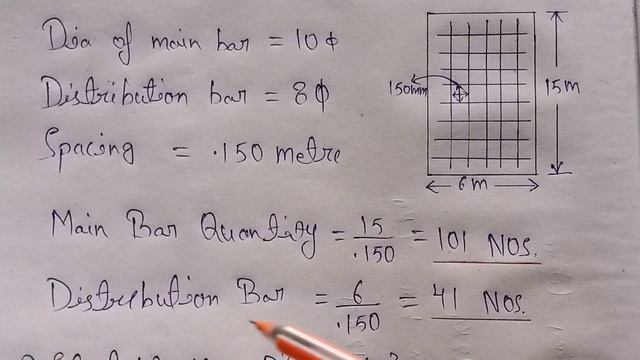 Dia of main bar = 10 ϕ
Distribution bar = 8 ϕ
Spacing = .150 metre
150mm
15m
6m
Main Bar Quantity = 15/.150 = 101 NOS.
Distribution Bar = 6/.150 = 41 NOS.